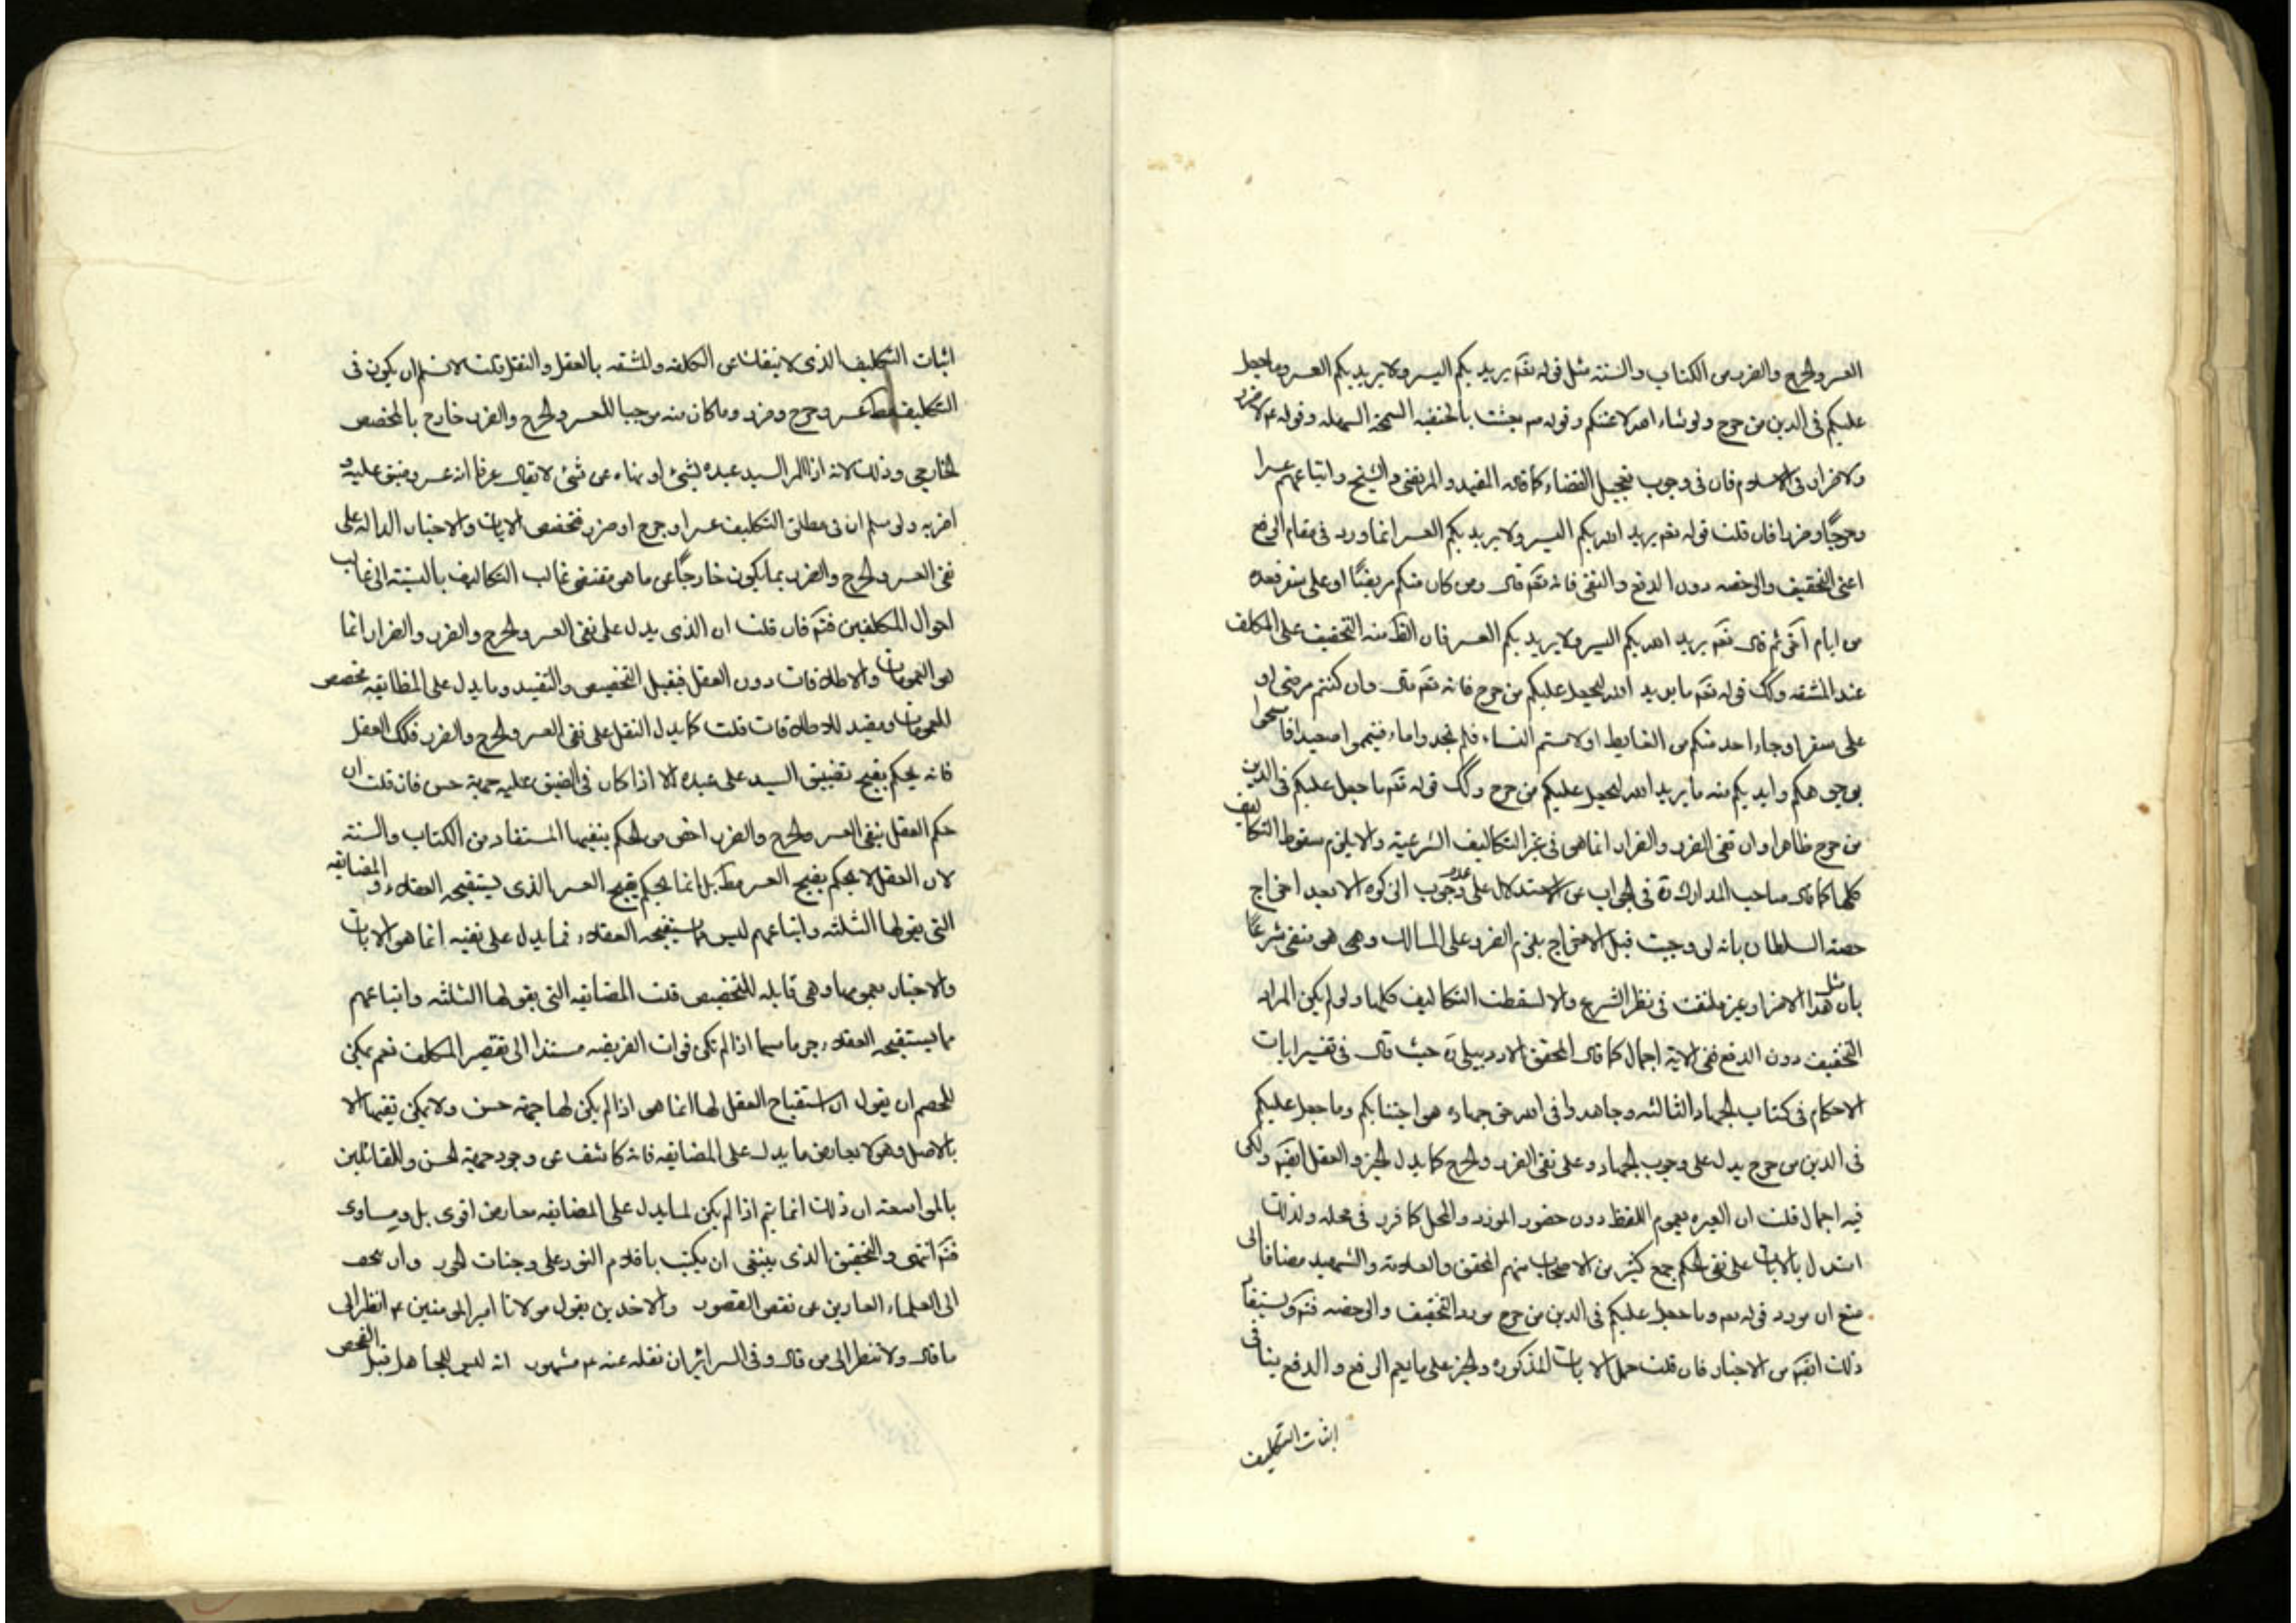 العسر والحرج والضرر من الكتاب والسنة مثل قوله تعم يريد بكم اليسر ولا يريد بكم العسر وما جعل
عليكم في الدين من حرج ولو شاء الله لاعنتكم وقوله ص بعثت بالحنفية السمحة السهلة وقوله ع لا ضرر
ولا ضرار في الاسلام فان في وجوب تعجيل القضاء كما قاله المفيد والمرتضى والشيخ واتباعهم عسرا
وحرجًا وضررا فان قلت قوله تعم يريد الله بكم اليسر ولا يريد بكم العسر انما ورد في مقام الرفع
اعني التخفيف والرخصه دون الدفع والنفي فانه تعم قال ومن كان منكم مريضًا او على سفر فعده
من ايام اخر ثم قال تعم يريد الله بكم اليسر ولا يريد بكم العسر فان الظ منه التخفيف على المكلف
عند المشقه وكك قوله تعم ما يريد الله ليجعل عليكم من حرج فانه تعم قال وان كنتم مرضى او
على سفر او جاء احد منكم من الغايط او لامستم النساء فلم تجدوا ماء فتيمموا صعيدا فامسحوا
بوجوهكم وايديكم منه ما يريد الله ليجعل عليكم من حرج وكك قوله تعم ما جعل عليكم في الدين
من حرج ظاهرا وان نفي الضرر والضرار انما هو في غير التكاليف الشرعية والا يلزم سقوط التكاليف
كلها كما قال صاحب المدارك ره في الجواب عن الاستدلال على عدم وجوب الزكوة الا بعد اخراج
حصه السلطان بانه لو وجبت قبل الاخراج يلزم الضرر على المالك وهو منفي شرعًا
بان مثل هذا الاضرار غير ملتفت في نظر الشرع والا لسقطت التكاليف كلها ولو لم يكن المراد
التخفيف دون الدفع ففي الاية اجمال كما قال المحقق الاردبيلي ره حيث قال في تفسير ايات
الاحكام في كتاب الجهاد الثالثه وجاهدوا في الله حق جهاده هو اجتباكم وما جعل عليكم
في الدين من حرج يدل على وجوب الجهاد وعلى نفي الضرر والحرج كما يدل الخبر والعقل ايضم ولكن
فيه اجمال قلت ان العبره بعموم اللفظ دون حضور المورد والمحل كما قرر في محله ولذلك
استدل بالايات على نفي الحكم جمع كثير من الاصحاب منهم المحقق والعلامة والشهيد مضافا الى
منع ان مورد قوله تعم وما جعل عليكم في الدين من حرج مورد التخفيف والرخصه فتم ويستفاد
ذلك ايضم من الاخبار فان قلت حمل الايات المذكوره والخبر على ما يعم الرفع والدفع ينافي
اثبات التكليف
اثبات التكليف الذي لا ينفك عن الكلفه والمشقه بالعقل والنقل قلت لا نسلم ان يكون في
التكليف مط عسر وحرج وضرر وما كان منه موجبا للعسر والحرج والضرر خارج بالمخصص
الخارجي وذلك لانه اذا امر السيد عبده لشيء او نهاه عن شيء لا يقال عرفا انه عسر وضيق عليه و
اضر به ولو سلم ان في مطلق التكليف عسرا وحرج او ضرر فتخصص الايات والاخبار الداله على
نفي العسر والحرج والضرر بما يكون خارجًا عن ما هو مقتضى غالب التكاليف بالنسبة الى غالب
احوال المكلفين فتم فان قلت ان الذي يدل على نفي العسر والحرج والضرر والضرار انما
هو العمومات والاطلاقات دون العقل فيقبل التخصيص والتقييد وما يدل على المضايقه مخصص
للعمومات ومقيد للاطلاقات قلت كما يدل النقل على نفي العسر والحرج والضرر فكك العقل
فانه يحكم بقبح تضييق السيد على عبده الا اذا كان في الضيق عليه جهة حسن فان قلت ان
حكم العقل بنفي العسر والحرج والضرر اخص من الحكم بنفيها المستفاد من الكتاب والسنة
لان العقل لا يحكم بقبح العسر مط بل انما يحكم بقبح العسر الذي يستقبحه العقلاء والمضايقه
التي يقولها الثلثه واتباعهم ليس مما يستقبحه العقلاء فما يدل على نفيه انما هو الايات
والاخبار بعمومها وهي قابله للتخصيص قلت المضايقه التي يقولها الثلثه واتباعهم
مما يستقبحه العقلاء جزما سيما اذا لم تكن فوات الفريضه مستندا الى تقصير المكلف نعم يمكن
للخصم ان يقول ان استقباح العقل لها انما هو اذا لم يكن لها جهة حسن ولا يمكن نفيها الا
بالاصل وهو لا يعارض ما يدل على المضايقه فانه كاشف عن وجود جهة الحسن وللقائلين
بالمواسعه ان ذلك انما يتم اذا لم يكن لما يدل على المضايقه معارض اقوى بل ومساوى
فتم انتهى والتحقيق الذي ينبغي ان يكتب باقلام النور على وجنات الحور وان يتحف
الى العلماء العارين عن نقص القصور والاخذين بقول مولانا امير المومنين ع انظر الى
ما قال ولا تنظر الى من قال وفي السرائر ان نقله عنه ع مشهور انه ليس للجاهل قبل الفحص